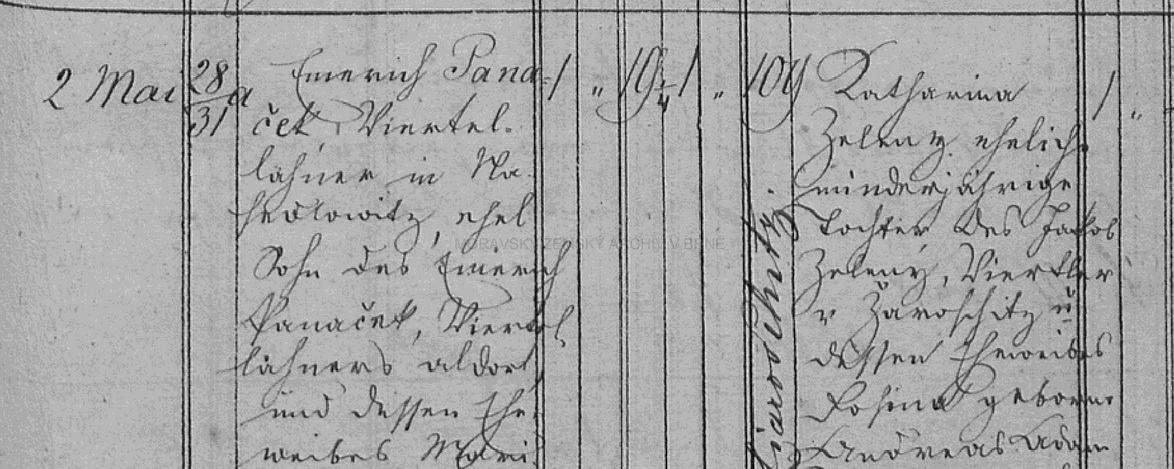 2 Mai
28
31 a
Emerich Pana-
ček, Viertel-
lahner in Na-
sedlowitz, ehel
Sohn des Emerich
Panaček, Viertel
lahners aldort,
und dessen Ehe-
weibes Mari
1
"
19 1/4
1
"
109
Žaroschitz
Katharina
Zeleny eheliche
minderjährige
Tochter des Jakob
Zeleny, Viertler
v Žaroschitz u
dessen Eheweibes
Rosina geborne
Andreas Adam
1
"
MORAVSKÝ ZEMSKÝ ARCHIV V BRNĚ